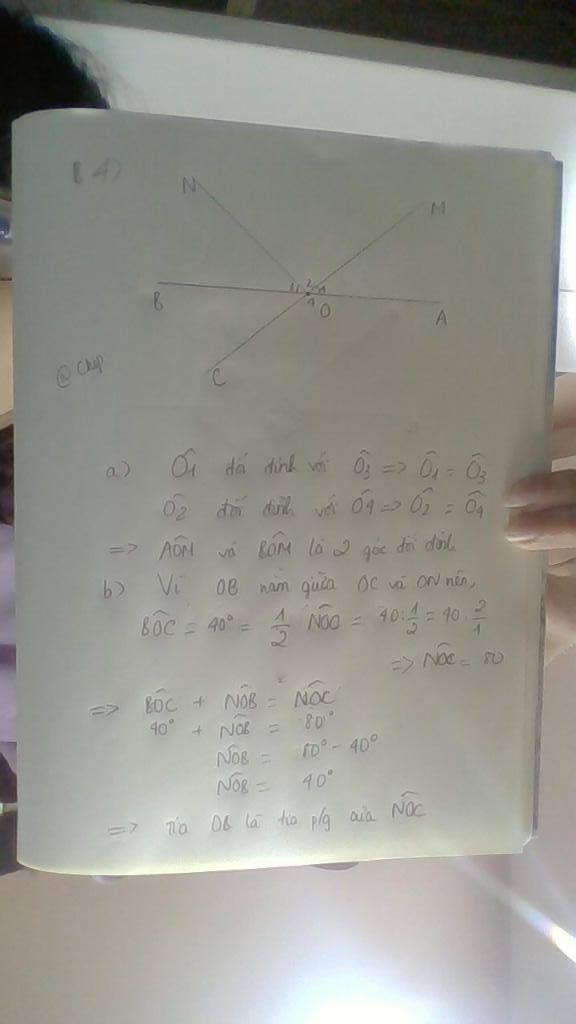 B4)
N
M
B
O
A
C
2
1
4
@ Chép
a) Ô1 đối đỉnh với Ô3 => Ô1 = Ô3
Ô2 đối đỉnh với Ô4 => Ô2 = Ô4
=> AÔM và BÔM là 2 góc đối đỉnh
b) Vì OB nằm giữa OC và ON nên,
BÔC = 40° = 1/2 NÔC = 40:1/2 = 40 . 2/1
=> NÔC = 80
=> BÔC + NÔB = NÔC
40° + NÔB = 80°
NÔB = 80° - 40°
NÔB = 40°
=> Tia OB là tia p/g của NÔC